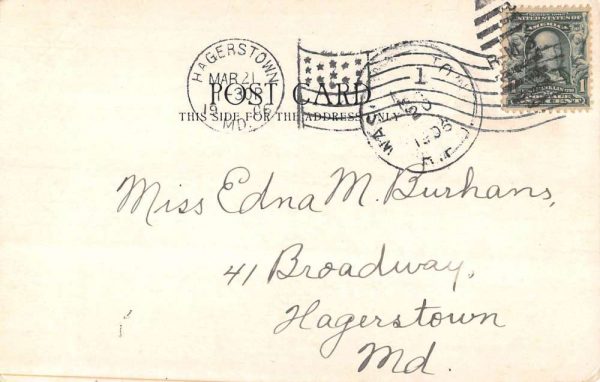 HAGERSTOWN
MAR 21
19
MD.
1
POST CARD
THIS SIDE FOR THE ADDRESS ONLY
UNITED STATES OF
1
Miss Edna M. Burhans,
41 Broadway,
Hagerstown
Md.